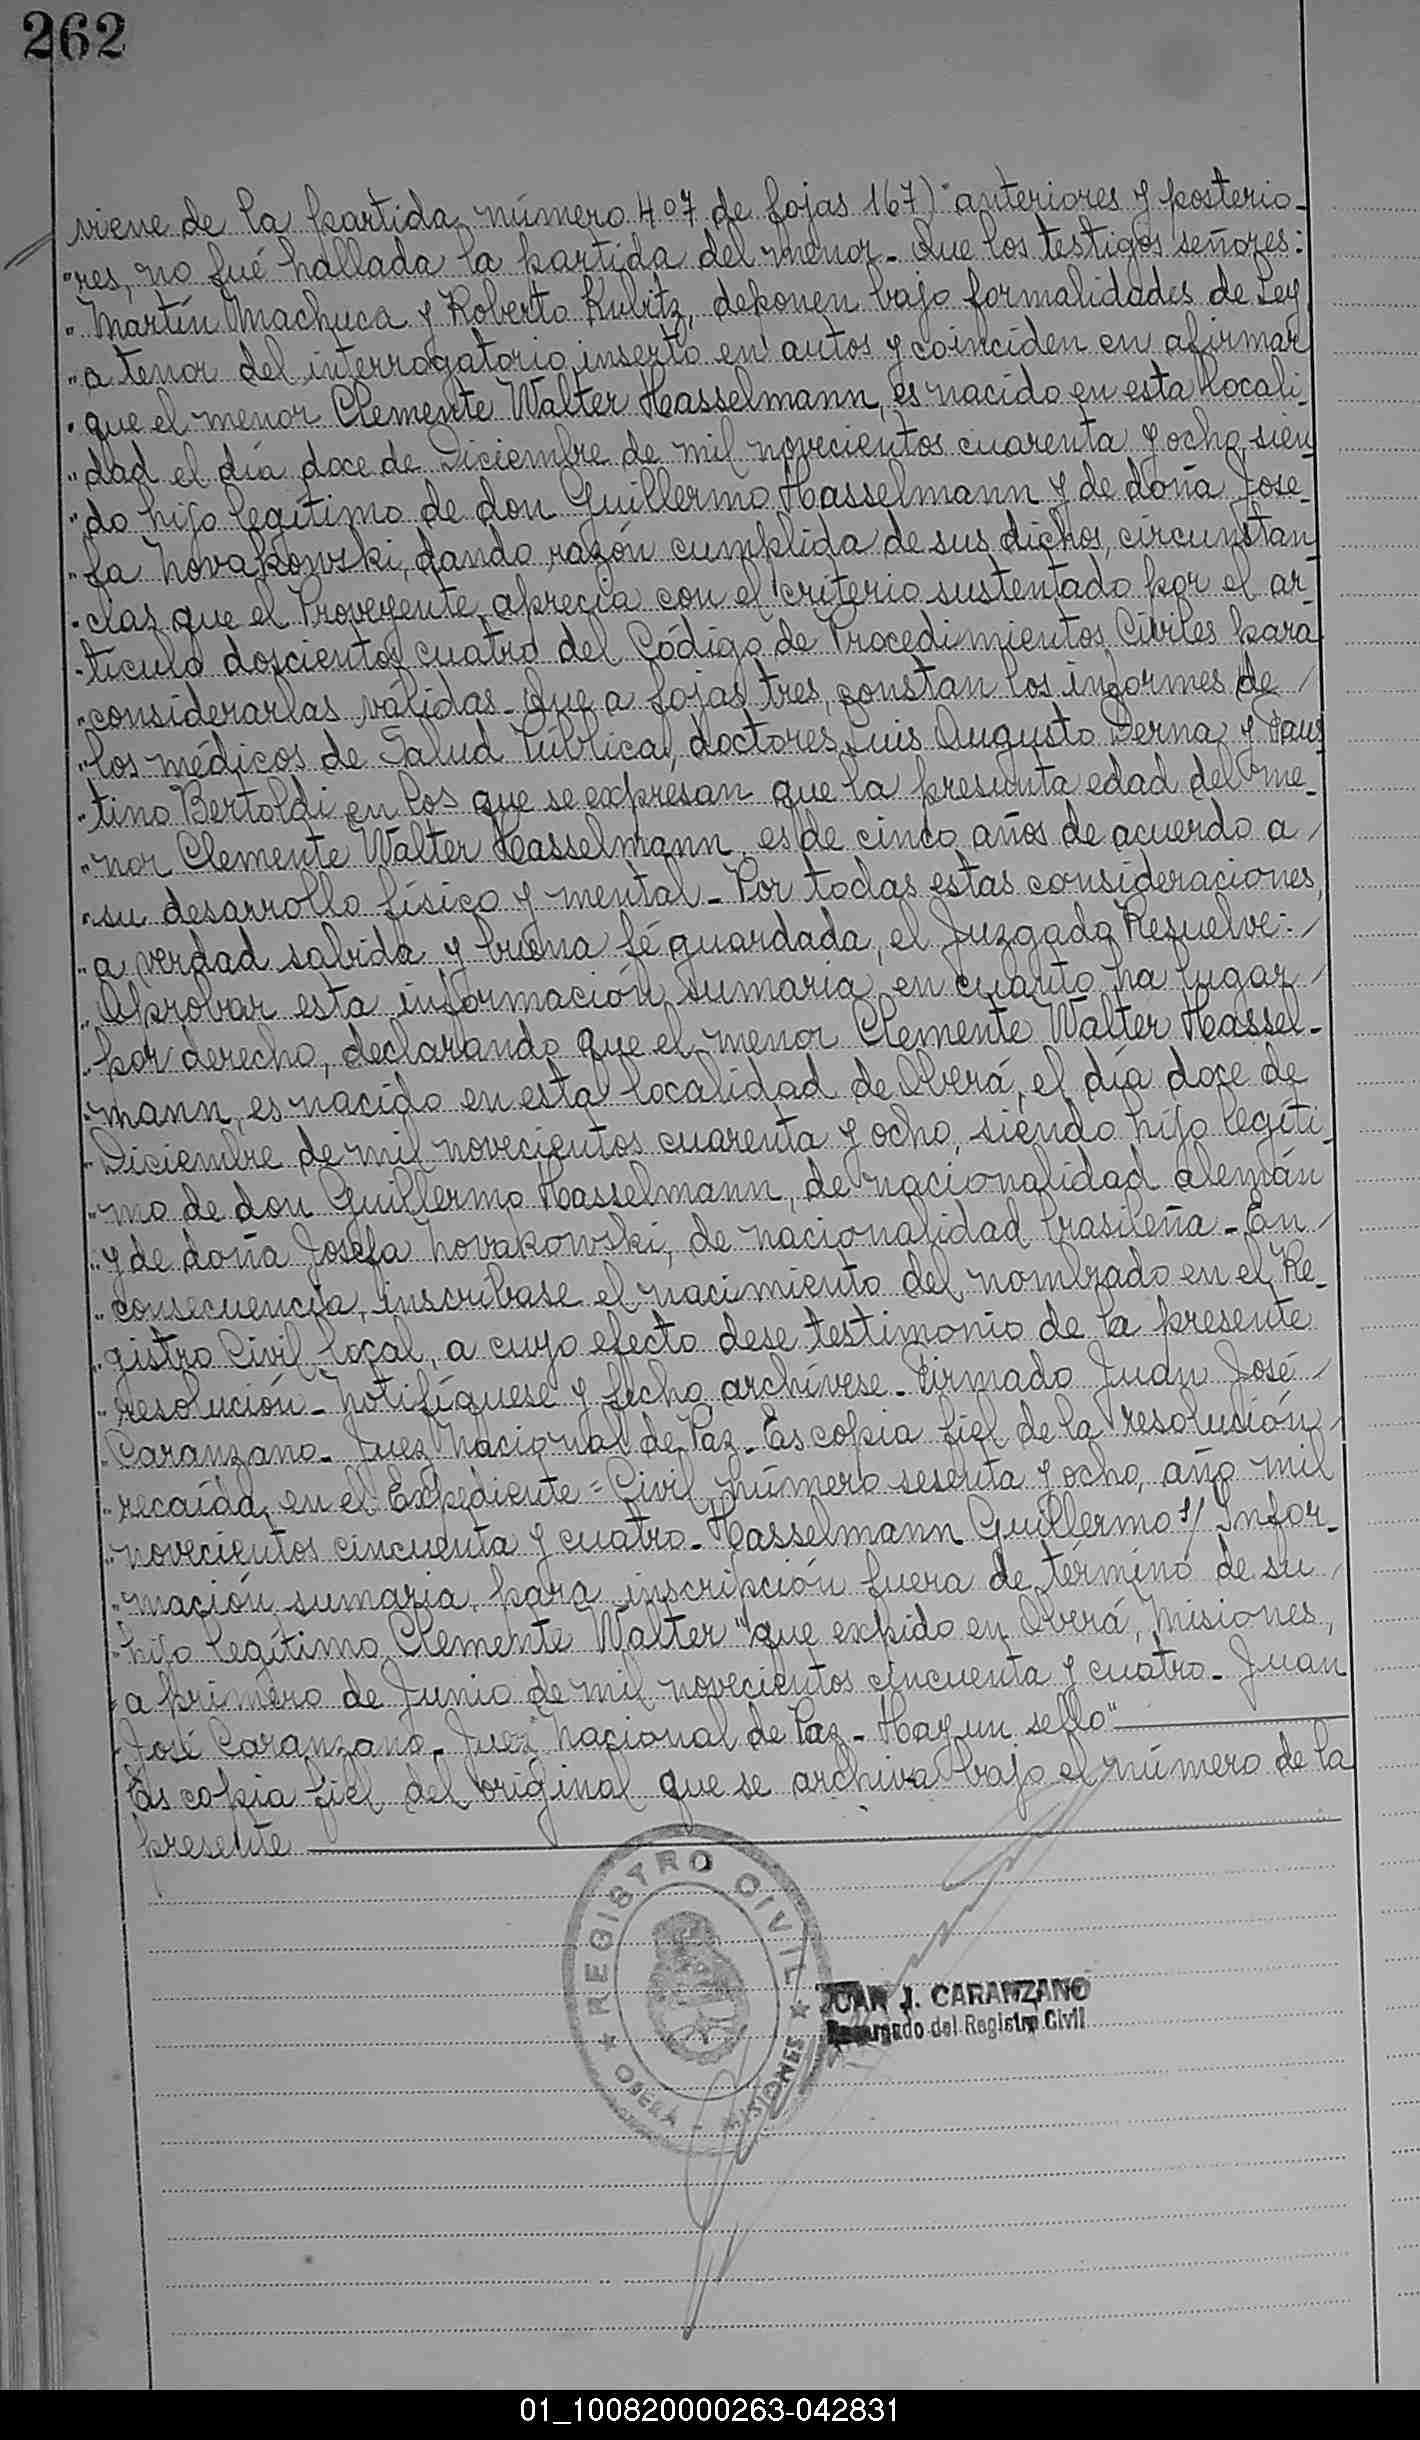 262
viene de la partida número 407 de fojas 167) "anteriores y posterio-
"res, no fué hallada la partida del menor - Que los testigos señores:
" Martín Machuca y Roberto Kubitz, deponen bajo formalidades de Ley
" a tenor del interrogatorio inserto en autos y coinciden en afirmar
" que el menor Clemente Walter Hasselmann, es nacido en esta locali-
" dad el día doce de Diciembre de mil novecientos cuarenta y ocho, sien
" do hijo legítimo de don Guillermo Hasselmann y de doña Jose-
" fa Novakowski, dando razón cumplida de sus dichos, circunstan
" cias que el Proveyente aprecia con el criterio sustentado por el ar-
" tículo doscientos cuatro del Código de Procedimientos Civiles para
" considerarlas válidas - Que a fojas tres, constan los informes de /
" los médicos de Salud Pública, doctores Luis Augusto Derna y Faus
" tino Bertoldi en los que se expresan que la presunta edad del me-
" nor Clemente Walter Hasselmann, es de cinco años de acuerdo a /
" su desarrollo físico y mental - Por todas estas consideraciones,
" a verdad sabida y buena fé guardada, el Juzgado Resuelve: /
" Aprobar esta información sumaria en cuanto ha lugar /
" por derecho, declarando que el menor Clemente Walter Hassel-
" mann, es nacido en esta localidad de Oberá, el día doce de
" Diciembre de mil novecientos cuarenta y ocho, siendo hijo legíti-
" mo de don Guillermo Hasselmann, de nacionalidad alemán
" y de doña Josefa Novakowski, de nacionalidad brasileña - En /
" consecuencia, inscríbase el nacimiento del nombrado en el Re-
" gistro Civil local, a cuyo efecto dese testimonio de la presente
" resolución - Notifíquese y fecho archívese - Firmado Juan José /
" Caranzano - Juez Nacional de Paz - Es copia fiel de la resolución /
" recaída en el Expediente = Civil número sesenta y ocho, año mil
" novecientos cincuenta y cuatro - Hasselmann Guillermo s/ Infor-
" mación sumaria para inscripción fuera de término de su /
" hijo legítimo Clemente Walter "que expido en Oberá, Misiones,
" a primero de Junio de mil novecientos cincuenta y cuatro - Juan
" José Caranzano - Juez Nacional de Paz - Hay un sello"
Es copia fiel del original que se archiva bajo el número de la
presente
REGISTRO CIVIL
★ OBERÁ - MISIONES ★
JUAN J. CARANZANO
Encargado del Registro Civil
01_100820000263-042831